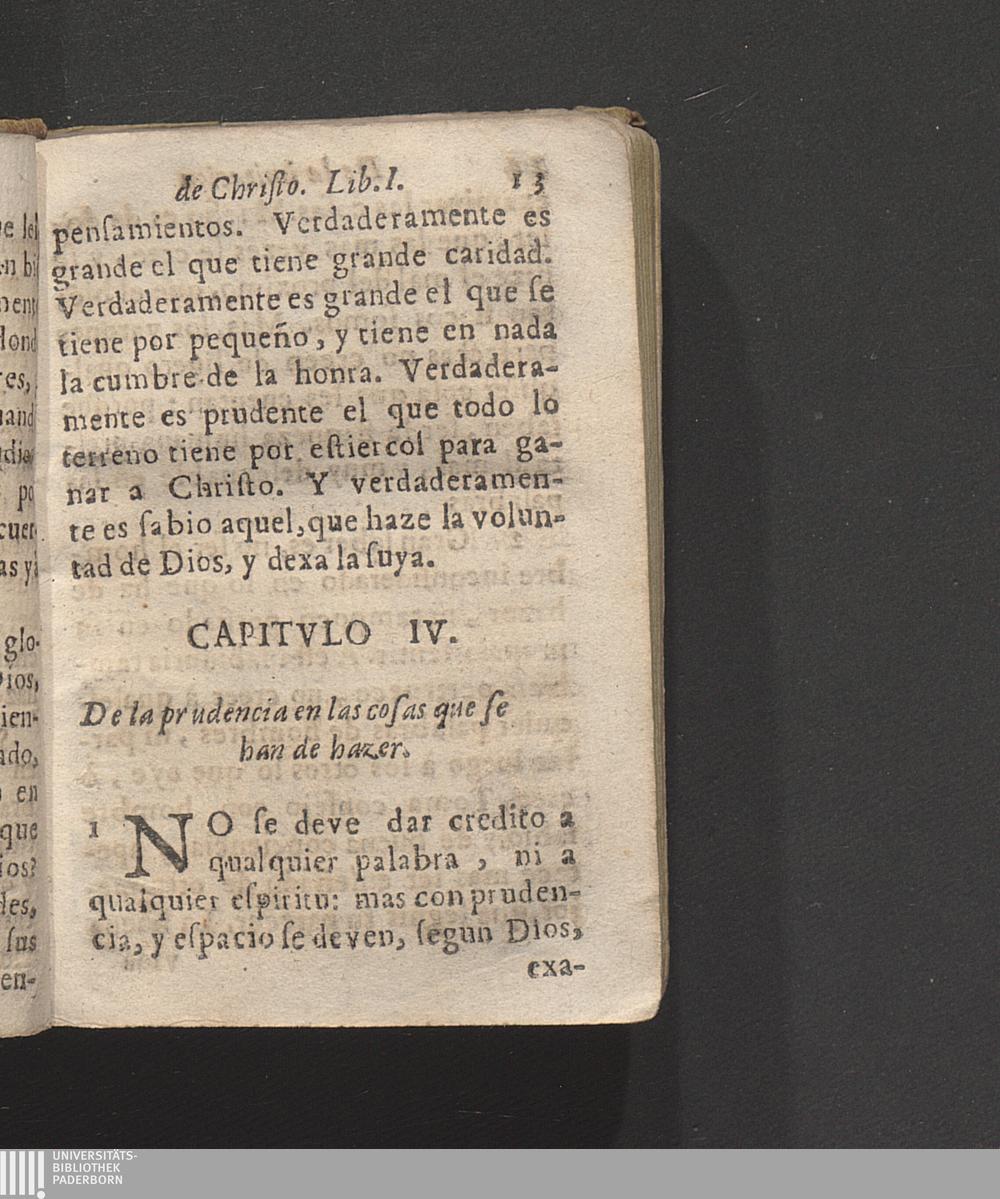 de Chriſto. Lib. I. 13
penſamientos. Verdaderamente es
grande el que tiene grande caridad.
Verdaderamente es grande el que ſe
tiene por pequeño, y tiene en nada
la cumbre de la honra. Verdadera-
mente es prudente el que todo lo
terreno tiene por eſtiercol para ga-
nar a Chriſto. Y verdaderamen-
te es ſabio aquel, que haze la volun-
tad de Dios, y dexa la ſuya.
CAPITVLO IV.
De la prudencia en las coſas que ſe
han de hazer.
1 NO ſe deve dar credito a
qualquier palabra, ni a
qualquier eſpiritu: mas con pruden-
cia, y eſpacio ſe deven, ſegun Dios,
exa-
UNIVERSITÄTS-
BIBLIOTHEK
PADERBORN